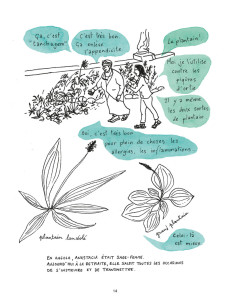 Ça, c'est
"Landragone"
C'est très bon.
Ça enlève
l'appendicite
Le plantain!
Moi je l'utilise
contre les
piqûres
d'ortie
Il y a même
les deux sortes
de plantain
Oui, c'est très bon
pour plein de choses, les
allergies, les inflammations...
plantain lancéolé
grand plantain
Celui-là
est mieux
EN ANGOLA, ANASTACIA ÉTAIT SAGE-FEMME.
AUJOURD'HUI À LA RETRAITE, ELLE SAISIT TOUTES LES OCCASIONS
DE S'INSTRUIRE ET DE TRANSMETTRE.
14